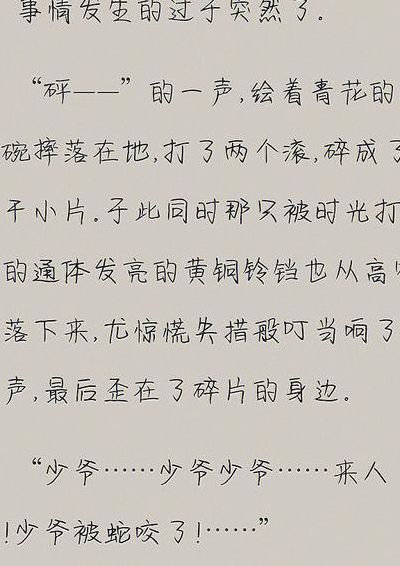 事情发生的过于突然了。
“砰——”的一声,绘着青花的
碗摔落在地,打了两个滚,碎成了
干小片.于此同时那只被时光打
的通体发亮的黄铜铃铛也从高
落下来,尤惊慌失措般叮当响了
声,最后歪在了碎片的身边。
“少爷……少爷少爷……来人
!少爷被蛇咬了!……”